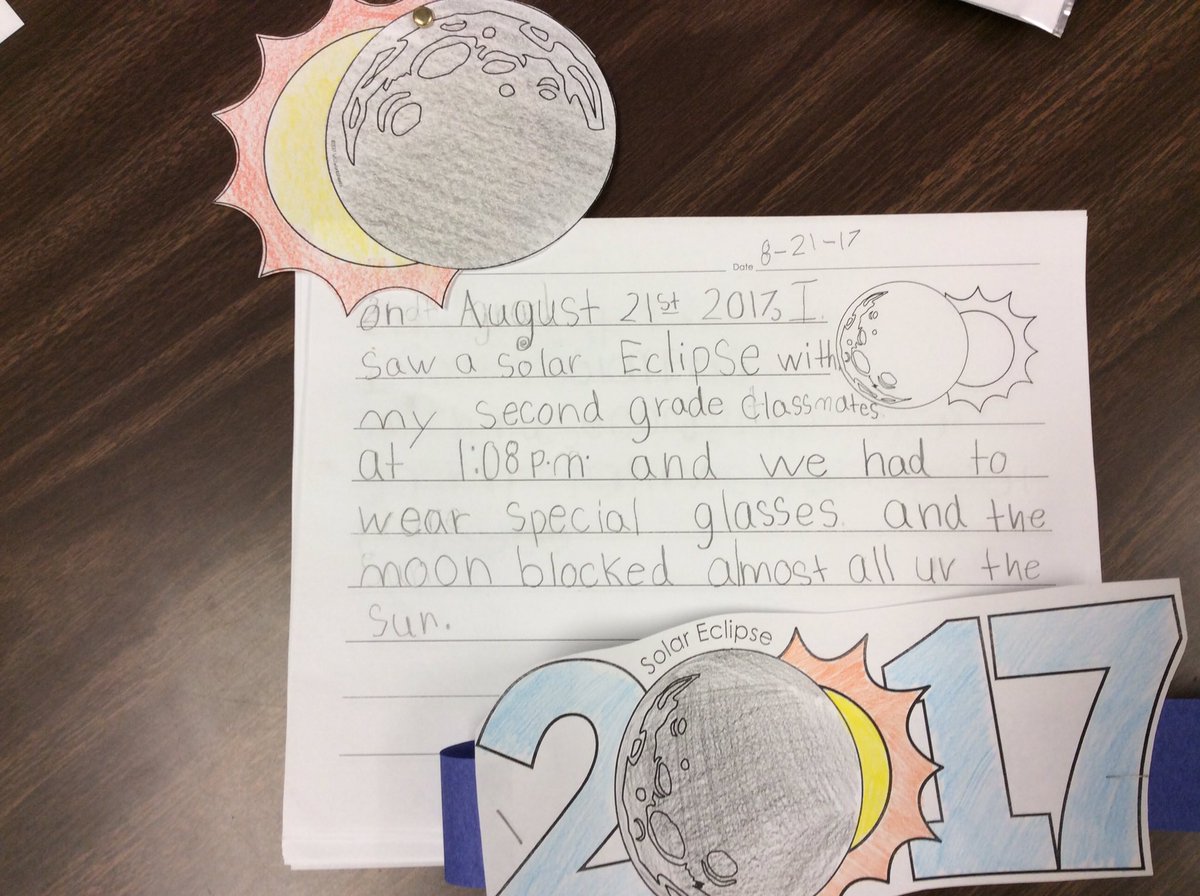 Date 8-21-17
on August 21st 2017, I
saw a solar Eclipse with
my second grade classmates.
at 1:08 p.m. and we had to
wear special glasses. and the
moon blocked almost all uv the
sun.
Solar Eclipse
2017